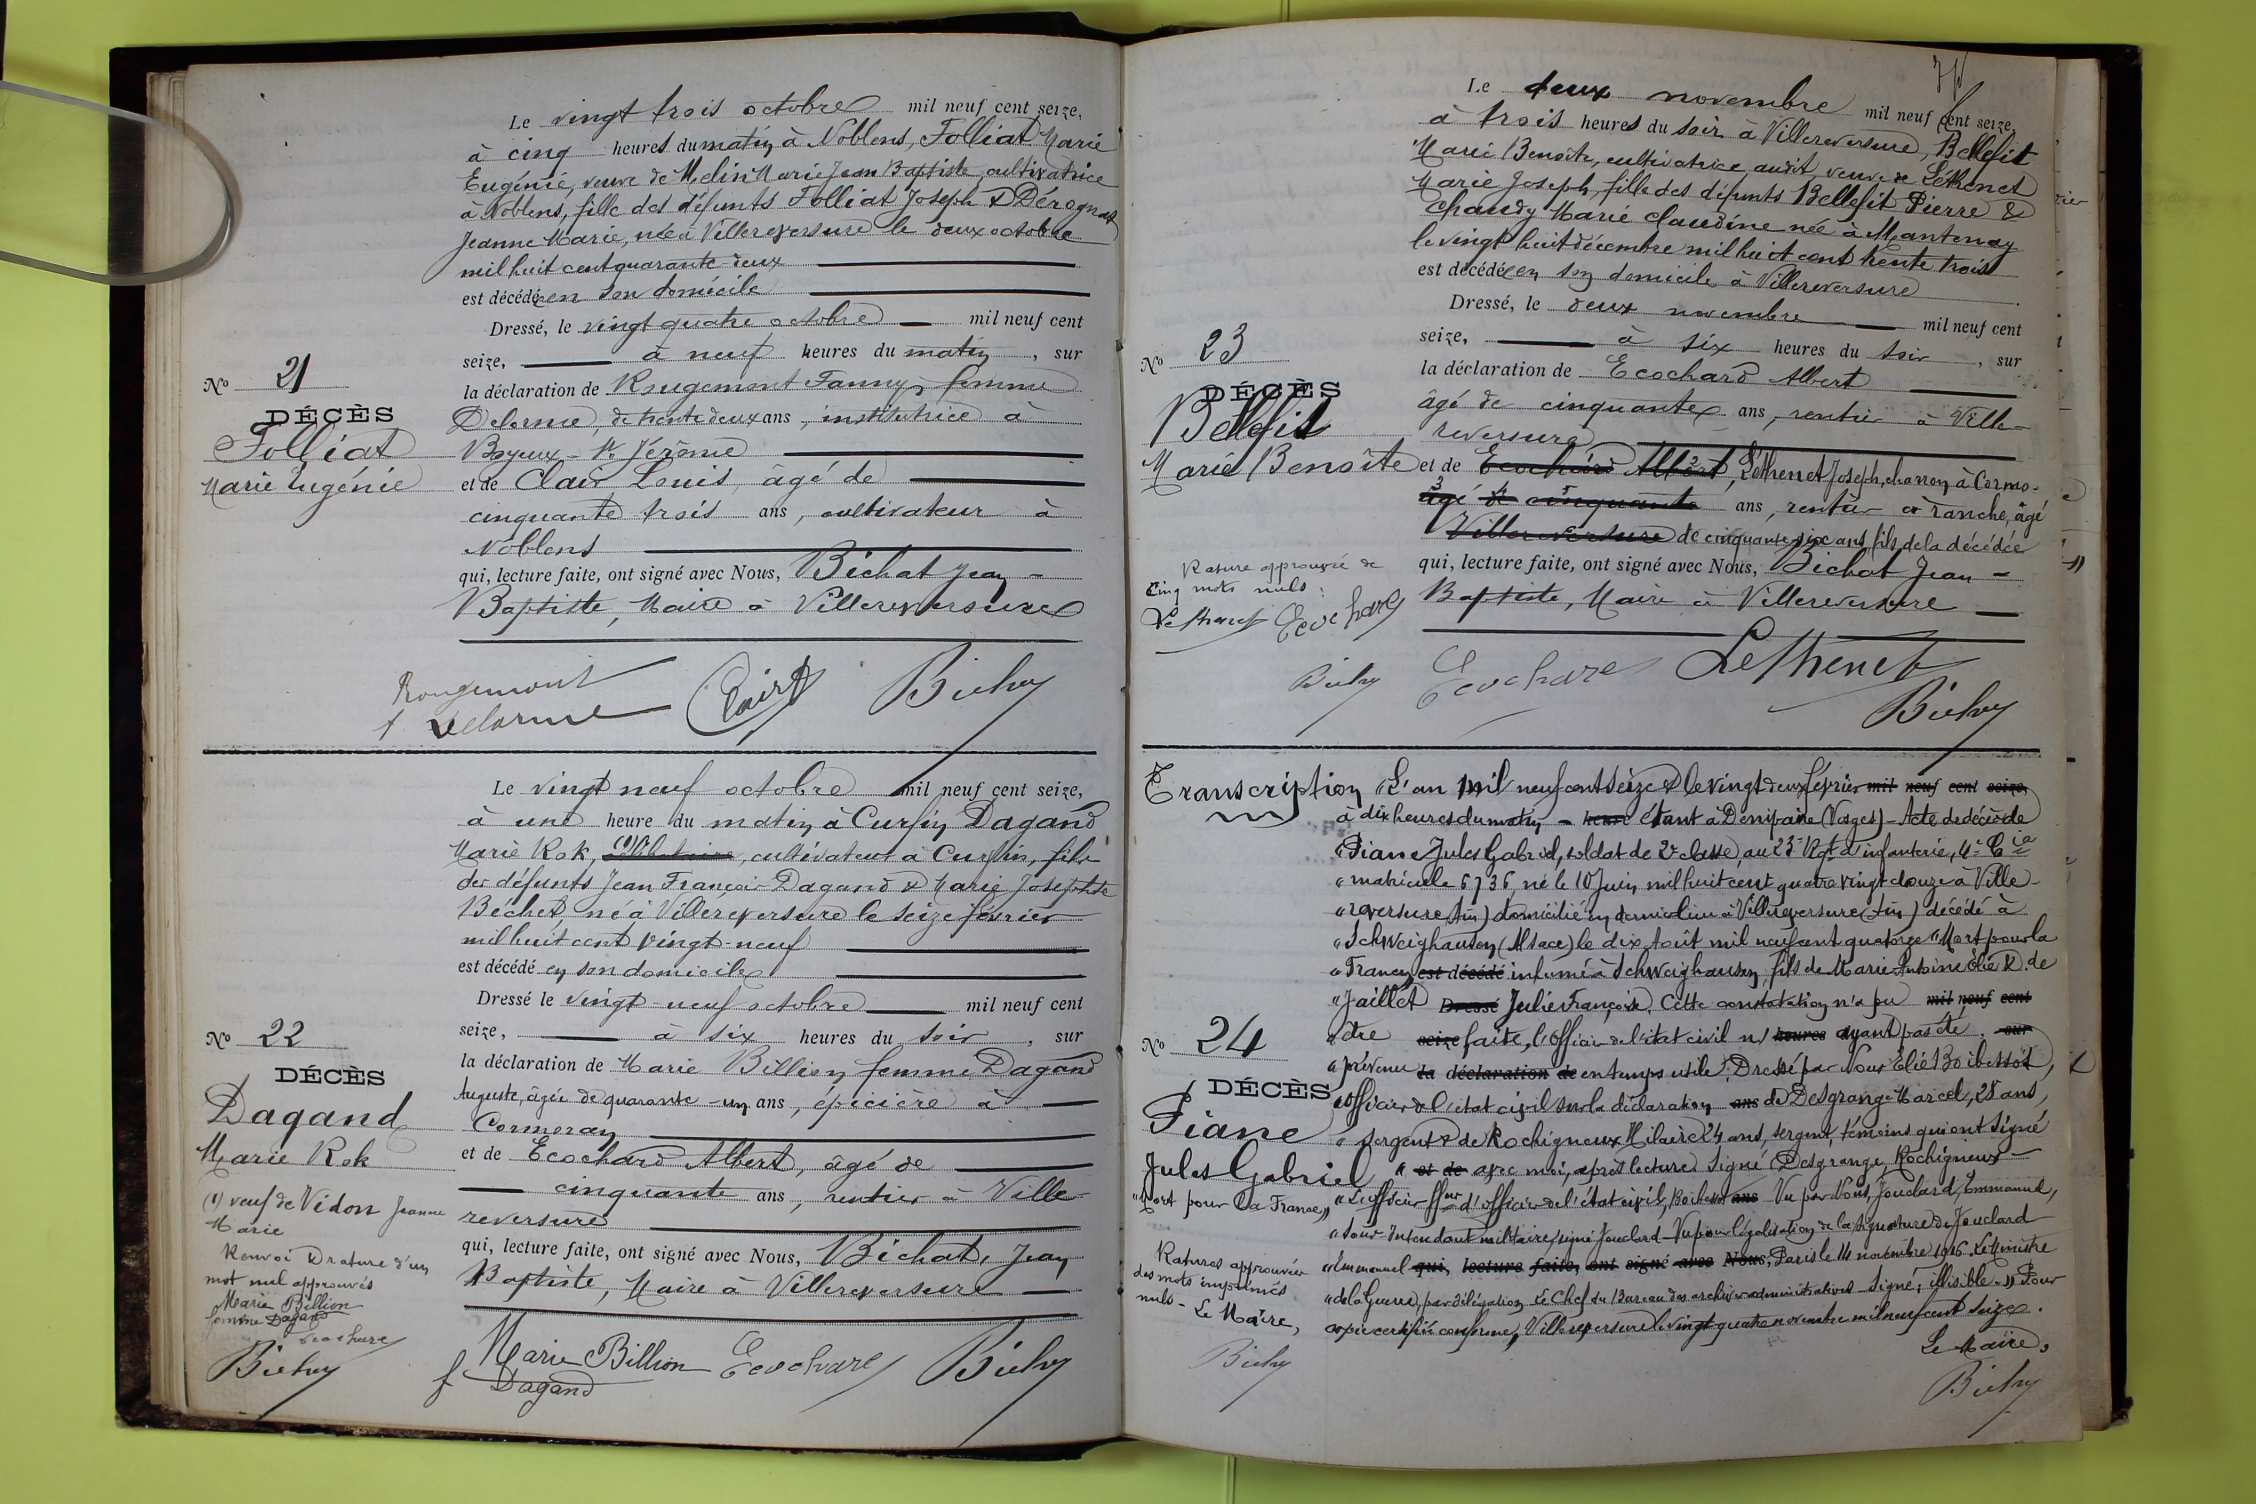 Le vingt trois octobre mil neuf cent seize,
à cinq heures du matin à Noblens, Folliat Marie
Eugénie, veuve de Melin Marie Jean Baptiste, cultivatrice
à Noblens, fille des défunts Folliat Joseph &
Jeanne Marie, née à Villereversure le deux octobre
mil huit cent quarante-deux
est décédée en son domicile
Dressé, le vingt quatre octobre mil neuf cent
seize, à neuf heures du matin, sur
la déclaration de Rougemont Fanny, femme
Delorme, de trente deux ans, institutrice à
Boyeux-St Jérôme
et de Clair Louis, âgé de
cinquante trois ans, cultivateur à
Noblens
qui, lecture faite, ont signé avec Nous, Bichat Jean-
Baptiste, Maire à Villereversure
No 21
DÉCÈS
Folliat
Marie Eugénie
Rougemont
f Delorme Clair Bichat
Le vingt neuf octobre mil neuf cent seize,
à une heure du matin à Curfin Dagand
Marie Rok, (1) cultivateur à Curfin, fils
des défunts Jean François Dagand & Marie Josephte
Béchet, né à Villereversure le seize février
mil huit cent vingt-neuf
est décédé en son domicile
Dressé le vingt-neuf octobre mil neuf cent
seize, à six heures du soir, sur
la déclaration de Marie Billion femme Dagand
Auguste, âgée de quarante-un ans, épicière à
Cormoran
et de Ecochard Albert, âgé de
cinquante ans, rentier à Ville-
reversure
qui, lecture faite, ont signé avec Nous, Bichat, Jean
Baptiste, Maire à Villereversure
No 22
DÉCÈS
Dagand
Marie Rok
(1) veuf de Vidon Jeanne
Marie
Renvoi & rature d'un
mot nul approuvés
Marie Billion
femme Dagand
Ecochard
Bichat
f Marie Billion Ecochard Bichat
Dagand
Le deux novembre mil neuf cent seize,
à trois heures du soir à Villereversure, Bellefit
Marie Benoîte, cultivatrice audit, veuve de Léthenet
Marie Joseph, fille des défunts Bellefit Pierre &
Chandy Marie Claudine née à Mantenay
le vingt huit décembre mil huit cent trente trois
est décédée en son domicile à Villereversure
Dressé, le deux novembre mil neuf cent
seize, à six heures du soir, sur
la déclaration de Ecochard Albert
âgé de cinquante ans, rentier à Ville-
reversure
et de Ecochard Albert, Léthenet Joseph, charron à Cormo-
âgé de cinquante ans, rentier à ranche, âgé
Villereversure de cinquante-six ans, fils de la décédée
qui, lecture faite, ont signé avec Nous, Bichat Jean-
Baptiste, Maire à Villereversure
No 23
DÉCÈS
Bellefit
Marie Benoîte
Rature approuvée de
cinq mots nuls:
Lethenet Ecochard
Bichat Ecochard Lethenet
Bichat
Transcription "L'an mil neuf cent seize & le vingt deux février mil neuf cent seize,
à dix heures du matin - heure étant à Denipaire (Vosges) - Acte de décès de
"Piane Jules Gabriel, soldat de 2e classe, au 23e Rgt d'infanterie, 4e Cie
"matricule 6736, né le 10 Juin mil huit cent quatre vingt douze à Ville-
"reversure (Ain) domicilié en dernier lieu à Villereversure (Ain) décédé à
"Schweighausen (Alsace) le dix Août mil neuf cent quatorze "Mort pour la
"France, est décédé inhumé à Schweighausen, fils de Marie Antoine Elie & de
"Jaillet Dressé Julie Françoise. Cette constatation n'a pu mil neuf cent
"être seize faite, l'Officier de l'état civil n' heures ayant pas été sur
"prévenu la déclaration de en temps utile. Dressé par Nous Elie Boibessot,
"officier de l'état civil sur la déclaration ans de Desgrange Marcel, 28 ans,
"sergent & de Rochigneux Hilaire 24 ans, sergent, témoins qui ont signé
" et de avec moi, après lecture Signé Desgrange, Rochigneux -
"L'officier ffons d'officier de l'état civil, ans Vu par Nous, Jouclard, Emmanuel,
"sous-Intendant militaire, signé Jouclard - Vu pour légalisation de la signature de Jouclard
"Emmanuel qui, lecture faite, ont signé avec Nous, Paris le 14 novembre 1916. Le Ministre
"de la Guerre, par délégation Le Chef du Bureau des archives administratives - Signé, illisible. " Pour
copie certifiée conforme, Villereversure le vingt quatre novembre mil neuf cent seize.
Le Maire,
Bichat
No 24
DÉCÈS
Piane
Jules Gabriel
"Mort pour la France"
Ratures approuvées
des mots imprimés
nuls - Le Maire,
Bichat